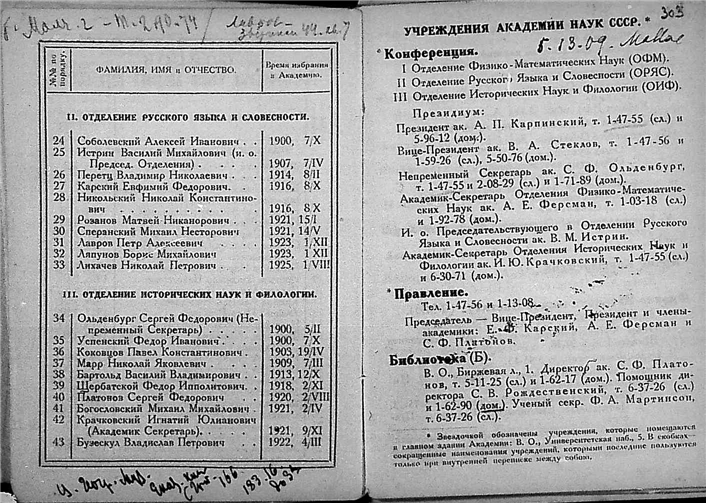 №№ по порядку.
ФАМИЛИЯ, ИМЯ и ОТЧЕСТВО.
Время избрания в Академию.
II. ОТДЕЛЕНИЕ РУССКОГО ЯЗЫКА И СЛОВЕСНОСТИ.
24 Соболевский Алексей Иванович . . 1900, 7/X
25 Истрин Василий Михайлович (и. о.
Председ. Отделения) . . . . . 1907, 7/IV
26 Перетц Владимир Николаевич . . 1914, 8/II
27 Карский Евфимий Федорович. . . 1916, 8/X
28 Никольский Николай Константино-
вич . . . . . . . . . . . . 1916, 8/X
29 Розанов Матвей Никанорович . . 1921, 15/I
30 Сперанский Михаил Несторович 1921, 14/V
31 Лавров Петр Алексеевич 1923, 1/XII
32 Ляпунов Борис Михайлович 1923, 1 XII
33 Лихачев Николай Петрович . . . 1925, 1/VIII
III. ОТДЕЛЕНИЕ ИСТОРИЧЕСКИХ НАУК И ФИЛОЛОГИИ.
34 Ольденбург Сергей Федорович (Не-
пременный Секретарь) . . . . . 1900, 5/II
35 Успенский Федор Иванович . . . 1900, 7/X
36 Коковцов Павел Константинович . 1903, 19/IV
37 Марр Николай Яковлевич . . . . 1909, 7/III
38 Бартольд Василий Владимирович . 1913, 12/X
39 Щербатской Федор Ипполитович. . 1918, 2/XI
40 Платонов Сергей Федорович . . . 1920, 2/VIII
41 Богословский Михаил Михайлович . 1921, 2/IV
42 Крачковский Игнатий Юлианович
(Академик Секретарь). . . . . 1921, 9/XI
43 Бузескул Владислав Петрович 1922, 4/III
303
УЧРЕЖДЕНИЯ АКАДЕМИИ НАУК СССР. *
*Конференция.
I Отделение Физико-Математических Наук (ОФМ).
II Отделение Русского Языка и Словесности (ОРЯС).
III Отделение Исторических Наук и Филологии (ОИФ).
Президиум:
Президент ак. А. П. Карпинский, т. 1-47-55 (сл.) и
5-96-12 (дом.).
Вице-Президент ак. В. А. Стеклов, т. 1-47-56 и
1-59-26 (сл.), 5-50-76 (дом.).
Непременный Секретарь ак. С. Ф. Ольденбург,
т. 1-47-55 и 2-08-29 (сл.) и 1-71-89 (дом.).
Академик-Секретарь Отделения Физико-Математиче-
ских Наук ак. А. Е. Ферсман, т. 1-03-18 (сл.)
и 1-92-78 (дом.).
И. о. Председательствующего в Отделении Русского
Языка и Словесности ак. В. М. Истрин.
Академик-Секретарь Отделения Исторических Наук и
Филологии ак. И. Ю. Крачковский, т. 1-47-55 (сл.)
и 6-30-71 (дом.).
*Правление.
Тел. 1-47-56 и 1-13-08.
Председатель — Вице-Президент, Президент и члены-
академики: Е. Ф. Карский, А. Е. Ферсман и
С. Ф. Платонов.
Библиотека (Б).
В. О., Биржевая л., 1. Директор ак. С. Ф. Плато-
нов, т. 5-11-25 (сл.) и 1-62-17 (дом.). Помощник ди-
ректора С. В. Рождественский, т. 6-37-26 (сл.)
и 1-62-90 (дом.). Ученый секр. Ф. А. Мартинсон,
т. 6-37-26 (сл.).
* Звездочкой обозначены учреждения, которые помещаются
в главном здании Академии: В. О., Университетская наб., 5. В скобках—
сокращенные наименования учреждений, которыми последние пользуются
только при внутренней переписке между собою.